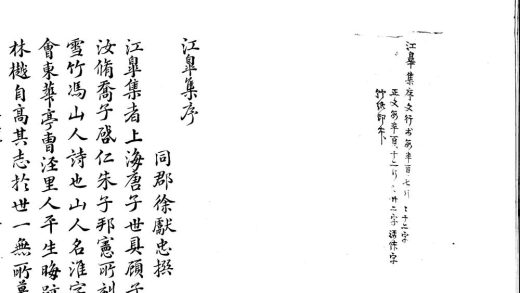 江皐集序文行书每半頁七行行十二字
正文每半頁十二行行廿二字
江皐集序
同郡徐獻忠撰
江皐集者上海唐子世具顧子
汝脩喬子啓仁朱子邦憲所刻
雪竹馮山人詩也山人名淮字
會東華亭曹涇里人平生晦跡
林樾自高其志於世一無所